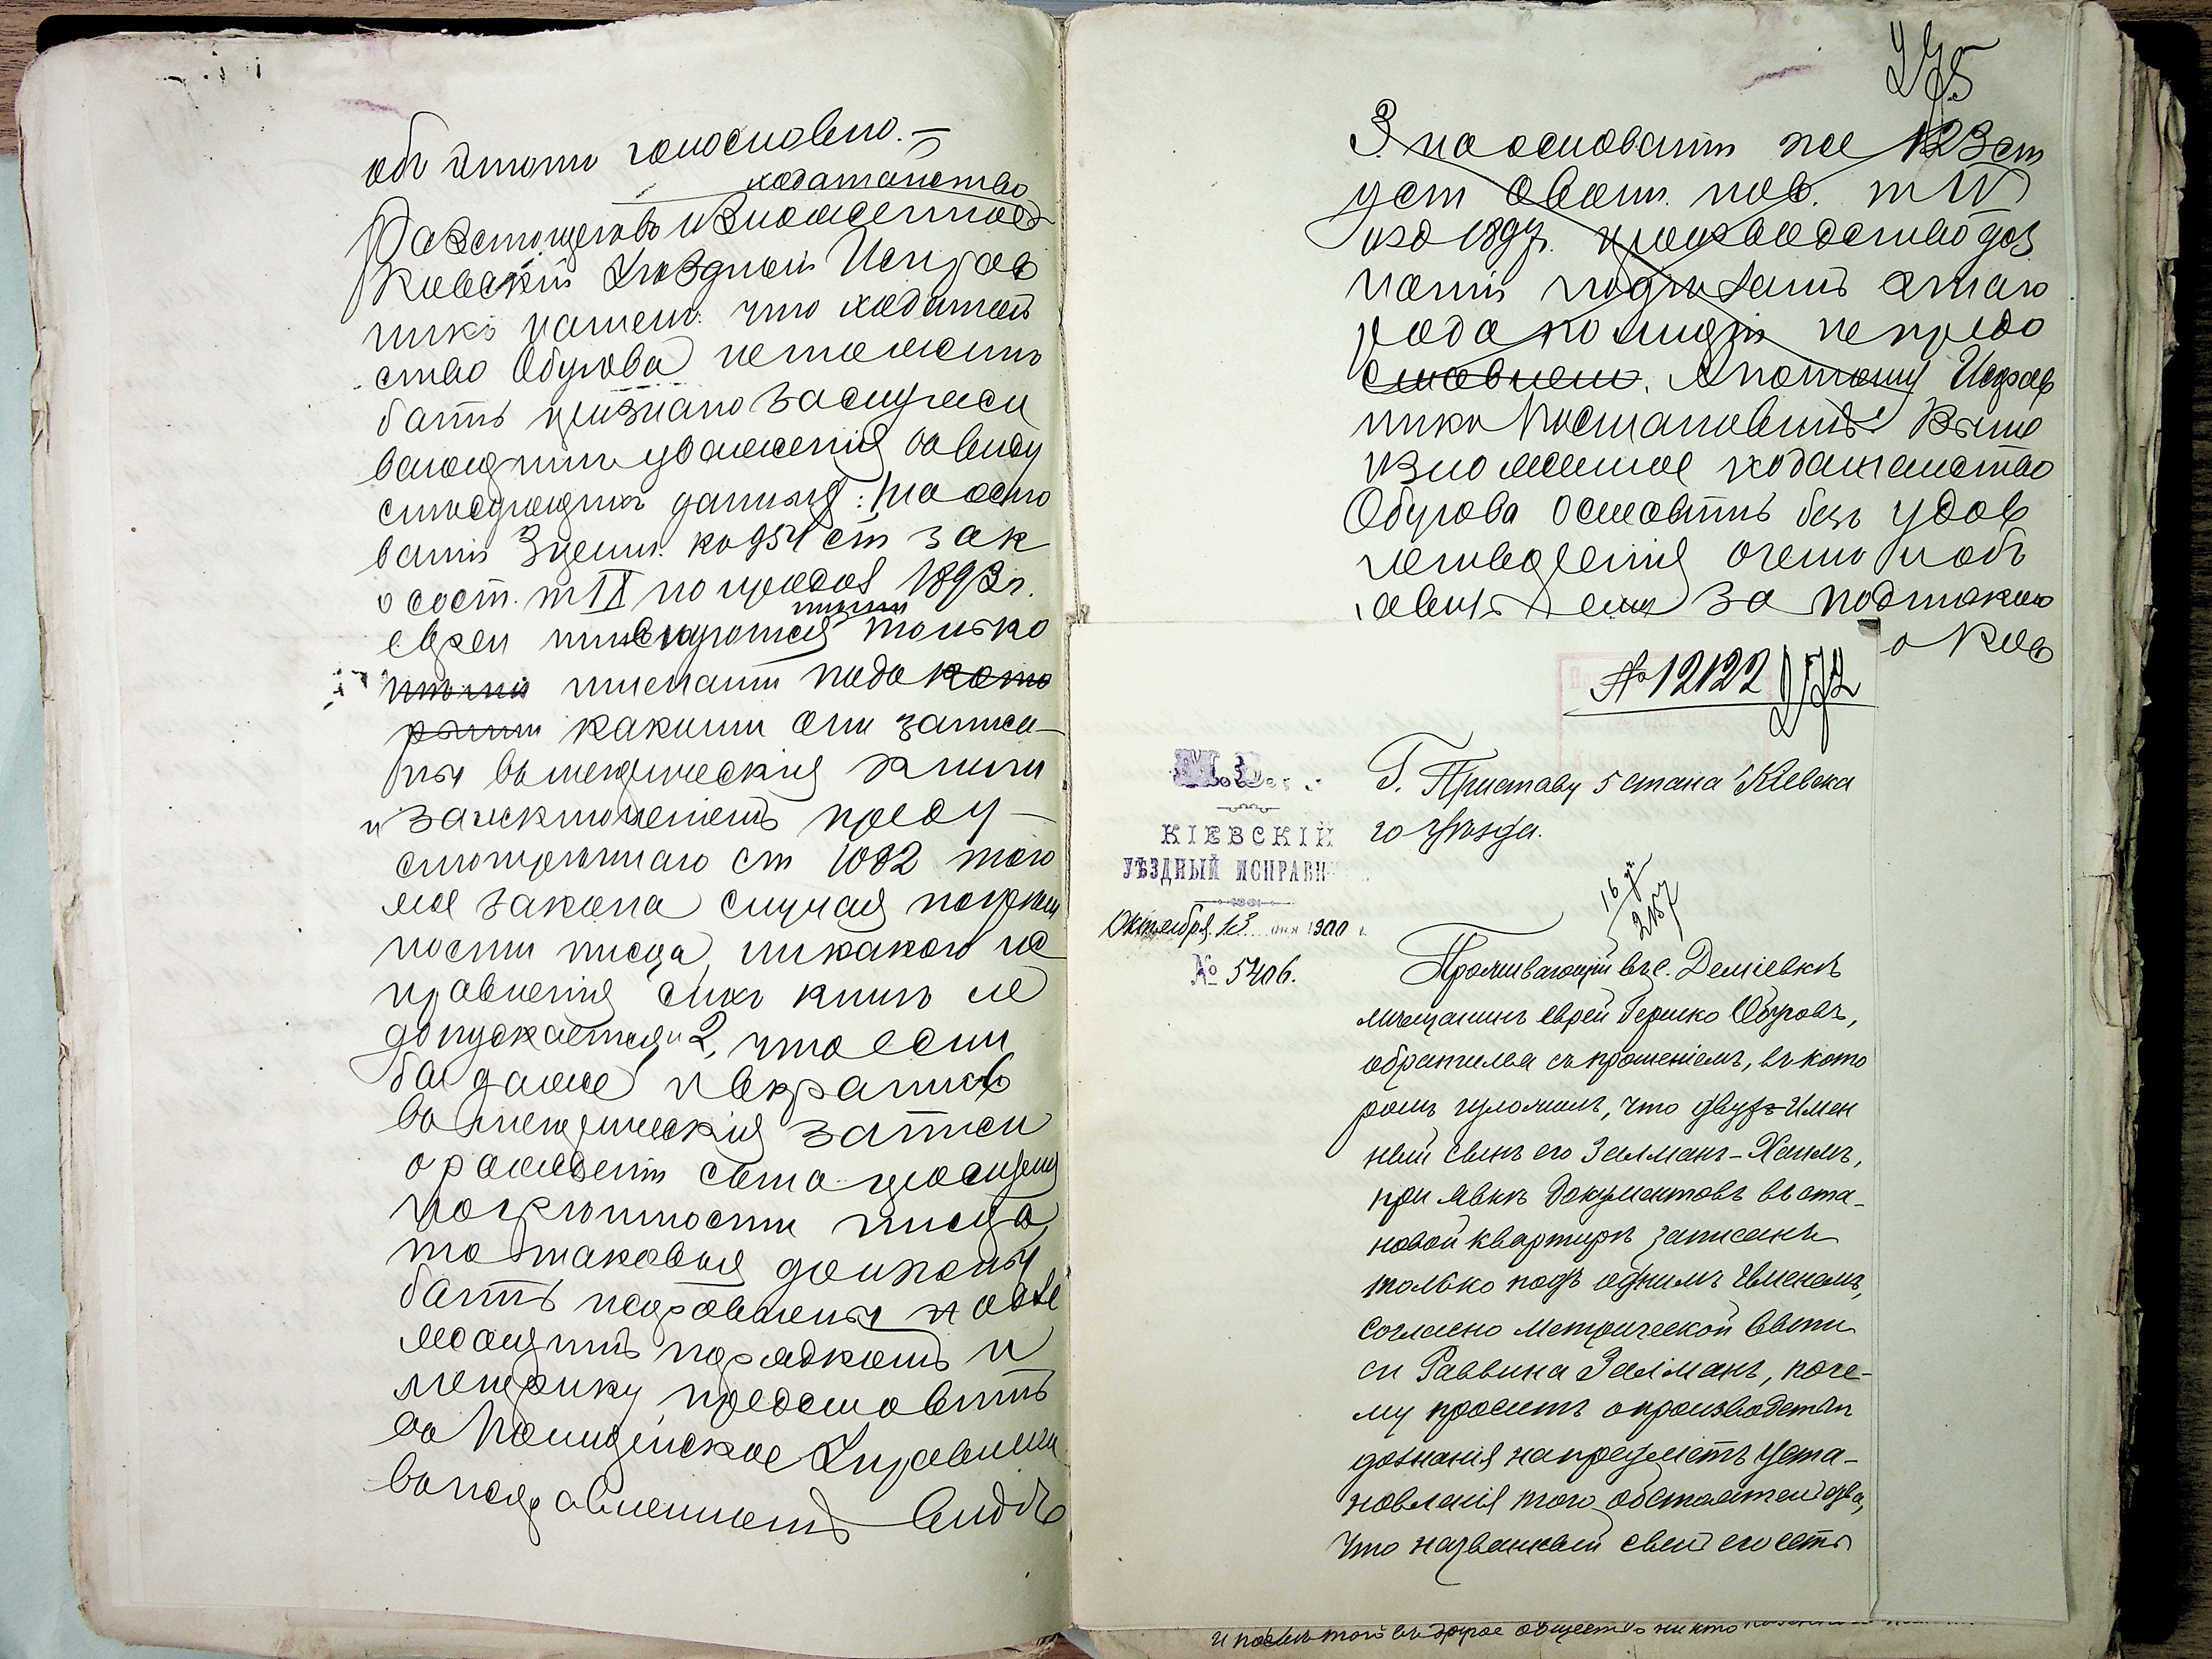 объ этомъ голословно. —
ходатайство
Разсмотревъ изложенное
Кіевскій Уѣздный Исправ
никъ нашелъ: что ходатай
ство Обухова не можетъ
быть признано заслужи
вающимъ уваженія въ виду
слѣдующихъ данныхъ: На осно
ваніи 3 прим. къ 954 ст зак
о сост. т IX по продол 1893 г.
имени
евреи именуются только
имени именами подъ кото
рыми какими они записа-
ны въ метрическія книги
и за исключеніемъ преду-
смотреннаго ст 1082 того
же закона случая погрѣш
ности писца, никакого ис
правленія сихъ книгъ не
допускается и 2, что если
бы даже и вкралися
въ метрическія записи
о рожденіи сына просителя
погрѣшности писца,
то таковыя должны
быть исправлены надле
жащимъ порядкомъ и
метрику представить
въ Полицейское Управленіе
въ исправленномъ видѣ
275
3. на основаніи же 123 ст
уст о воин. пов. т IV
изд 1897 г. производство доз
наній полиціи этаго
рода полиціи не предо
ставлено. А потому Исправ
никъ Постановилъ: Выше
изложенное ходатайство
Обухова оставить безъ удов
летворенія о чемъ и объ
явить ему за подпискою
№ 12122
272
М. В.
КІЕВСКІЙ
УѢЗДНЫЙ ИСПРАВН
Октября 13 дня 1900 г.
№ 5406.
Г. Приставу 5 стана Кіевска
го уѣзда.
16
2157
Проживающій въ с. Деміевкѣ
мѣщанинъ еврей Гершко Обуховъ,
обратился съ прошеніемъ, въ кото
ромъ изложилъ, что двухъ-имен
ный сынъ его Залманъ-Хаимъ,
при явкѣ документовъ въ ста-
новой квартирѣ записанъ
только подъ однимъ именемъ,
согласно метрической выпи
си Раввина Залманъ, поче-
му проситъ о производствѣ
дознанія на предметъ уста-
новленія того обстоятельства,
что названный сынъ его есть
и посему той въ другое общество никто